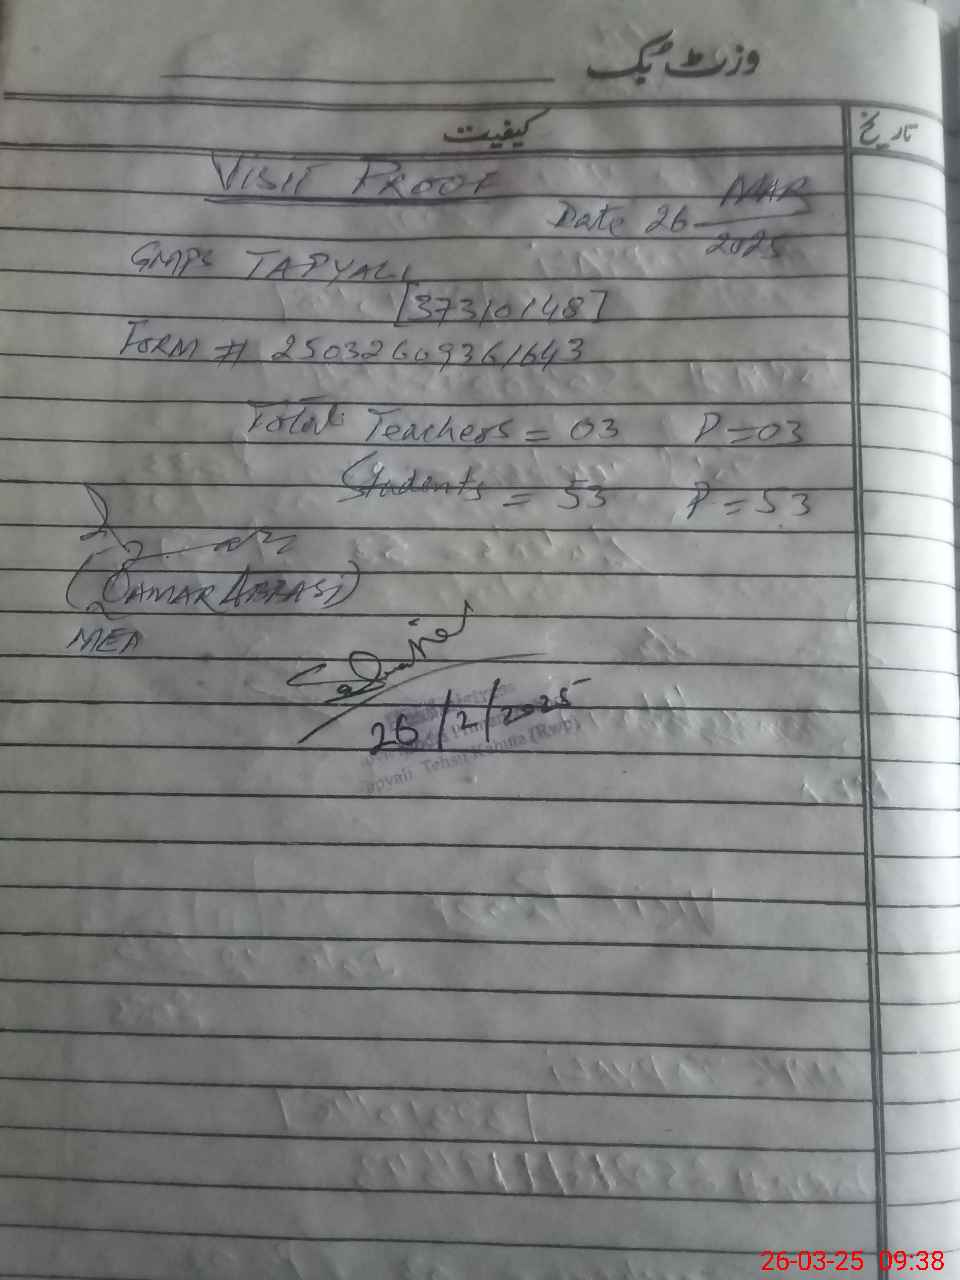 وزٹ بک
کیفیت
تاریخ
VISIT PROOF
Date 26 MAR
2025
GMPS TAPYALI
[37310148]
FORM # 25032609361643
Total Teachers = 03 P=03
Students = 53 P=53
(QAMAR ABBASI)
MEA
26/2/2025
Tehsil Kahuta (Rwp)
26-03-25 09:38